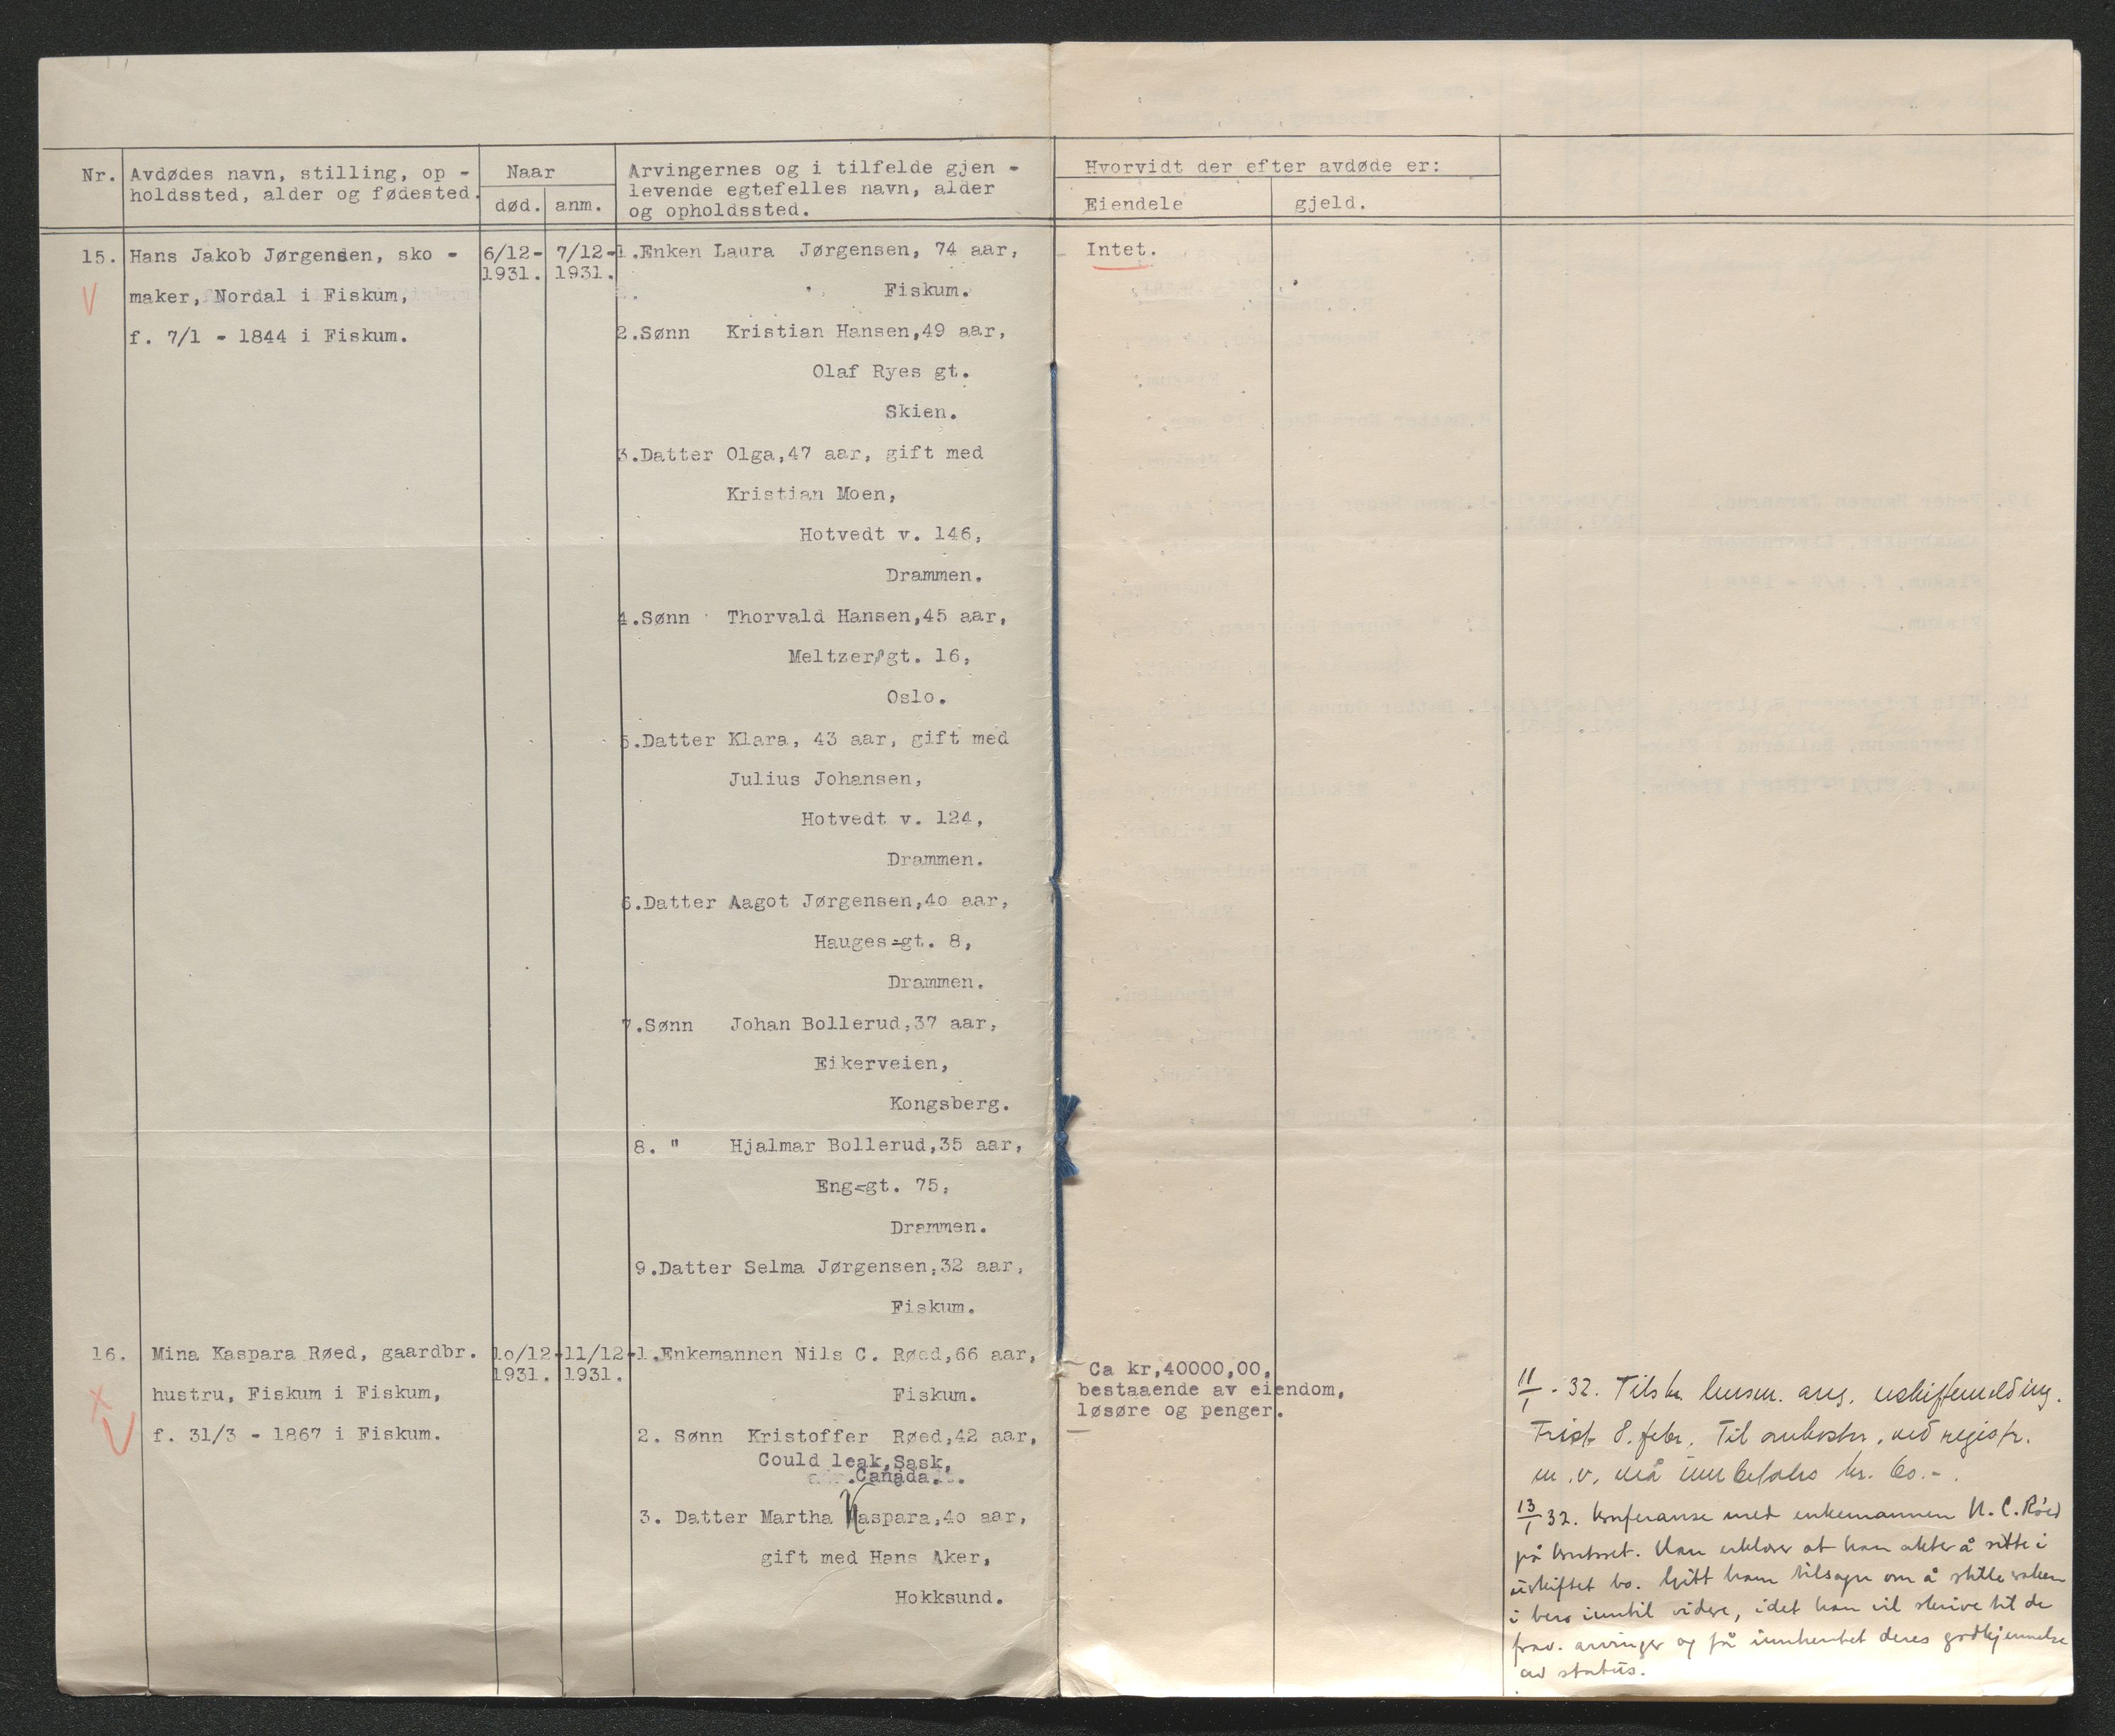 Nr.
Avdødes navn, stilling, op -
holdssted, alder og fødested.
Naar
død. anm.
Arvingernes og i tilfelde gjen -
levende egtefelles navn, alder
og opholdssted.
Hvorvidt der efter avdøde er:
Eiendele gjeld.
15. Hans Jakob Jørgensen, sko -
maker, Nordal i Fiskum,
f. 7/1 - 1844 i Fiskum.
6/12-
1931.
7/12-
1931.
1.Enken Laura Jørgensen, 74 aar,
Fiskum.
2.Sønn Kristian Hansen,49 aar,
Olaf Ryes gt.
Skien.
3.Datter Olga,47 aar, gift med
Kristian Moen,
Hotvedt v. 146,
Drammen.
4.Sønn Thorvald Hansen,45 aar,
Meltzer gt. 16,
Oslo.
5.Datter Klara, 43 aar, gift med
Julius Johansen,
Hotvedt v. 124,
Drammen.
6.Datter Aagot Jørgensen,4o aar,
Hauges-gt. 8,
Drammen.
7.Sønn Johan Bollerud,37 aar,
Eikerveien,
Kongsberg.
8. " Hjalmar Bollerud,35 aar,
Eng-gt. 75,
Drammen.
9.Datter Selma Jørgensen,32 aar,
Fiskum.
Intet.
16. Mina Kaspara Røed, gaardbr.
hustru, Fiskum i Fiskum,
f. 31/3 - 1867 i Fiskum.
1o/12-
1931.
11/12-
1931.
1.Enkemannen Nils C. Røed,66 aar,
Fiskum.
2. Sønn Kristoffer Røed,42 aar,
Could leak,Sask,
Canada.
3. Datter Martha Kaspara,4o aar,
gift med Hans Aker,
Hokksund.
Ca kr,40000,00,
bestaaende av eiendom,
løsøre og penger.
11/1 - 32. Tilskr. lensm. ang. uskiftemelding.
Frist 8. febr. Til omkostn. ved registr.
m. v. må innbetales kr. 60.-.
13/1 32. Konferanse med enkemannen N. C. Røed
på kontoret. Han erklærer at han akter å sitte i
uskiftet bo. Gitt ham tilsagn om å stille saken
i bero inntil videre, idet han vil skrive til de
frav. arvinger og få innhentet deres godkjennelse
av status.